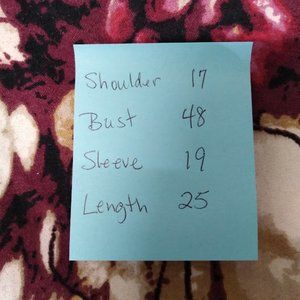 Shoulder 17
Bust 48
Sleeve 19
Length 25